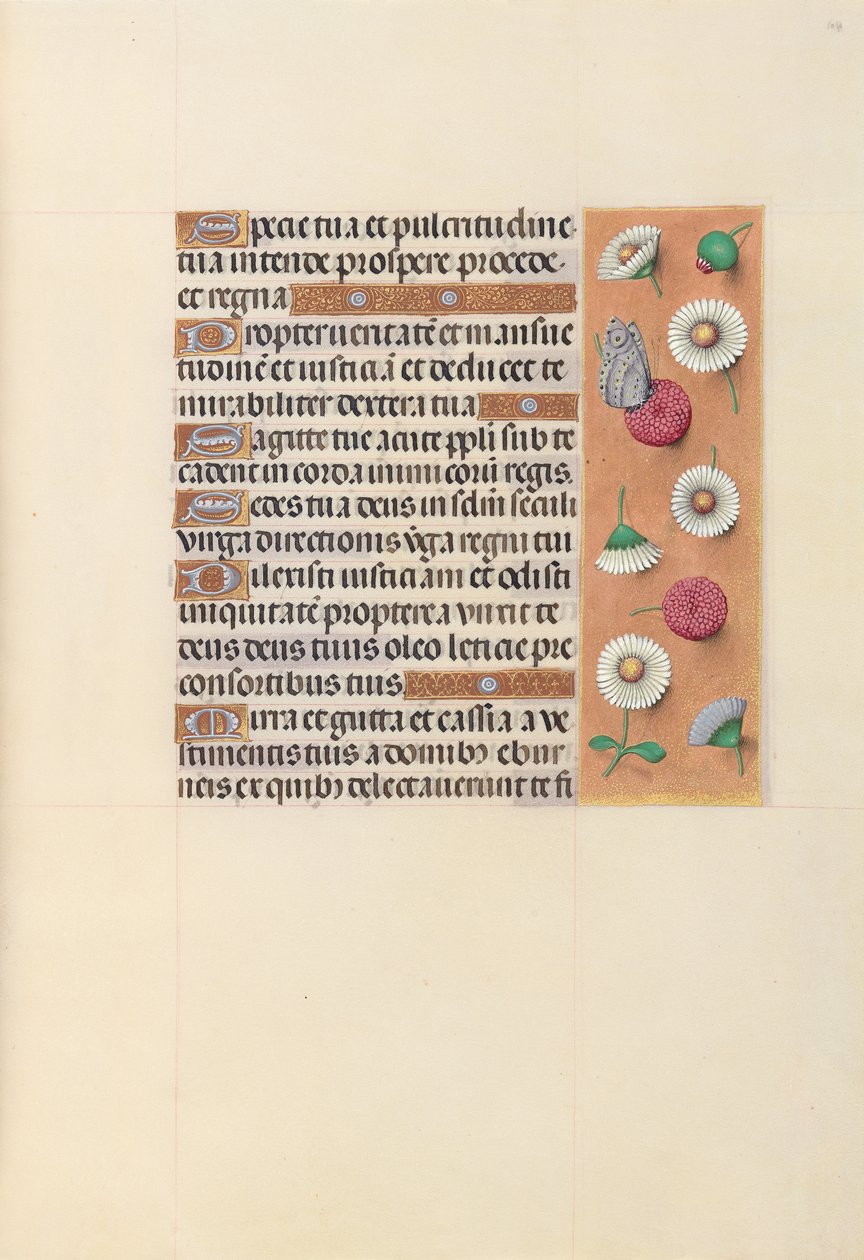 Specie tua et pulcritudine
tua intende prospere procede.
et regna
Propter veritatē et mansue
tudinē et iusticiā et deducet te
mirabiliter dextera tua
Sagitte tue acute ppli sub te
cadent in corda inimicorū regis.
Sedes tua deus in sclm seculi
virga directionis v̄ga regni tui
Dilexisti iusticiam et odisti
iniquitatē propterea vnxit te
deus deus tuus oleo leticie pre
consortibus tuis.
Mirra et gutta et cassia a ve
stimentis tuis a domibꝫ ebur
neis ex quibꝫ delectauerunt te fi